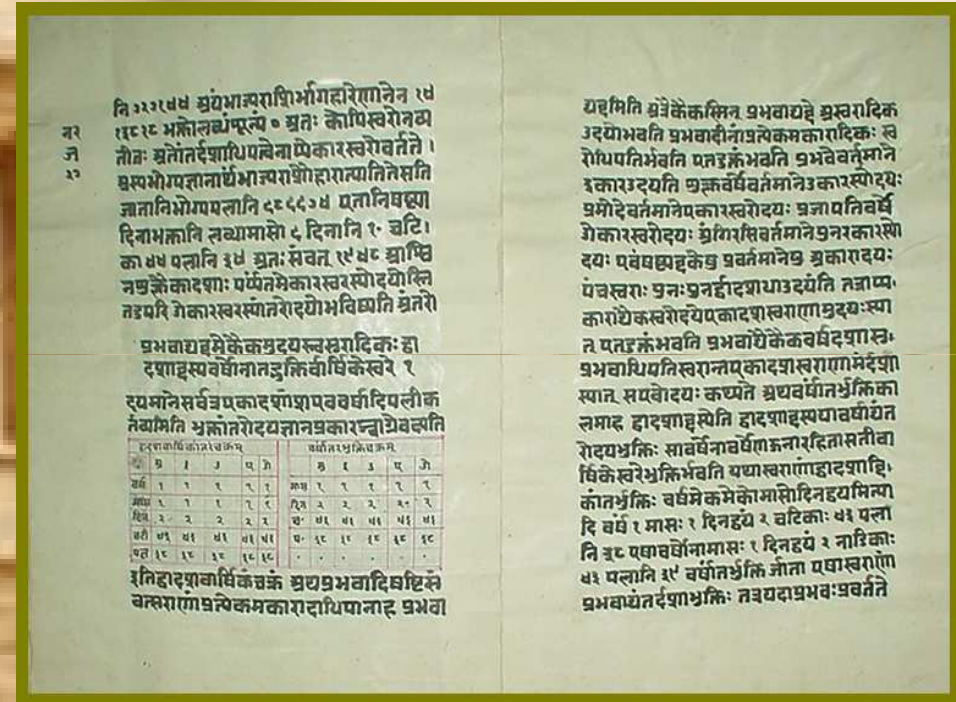 नर
ज
२२
नि ३२२१४४ अयंभाज्यराशिर्भागहारेणानेन १४
१६८१८ भक्तोलब्धंशून्यं ० अतः कोपिस्वरोनव्य
तीतः अतोंतर्दशाधिपत्वेनाप्येकारस्वरोवर्तते ।
अस्यभोग्यज्ञानार्थभाज्यराशौहारात्पातितेसति
जातानिभोग्यपलानि एतानिषष्ट्या
दिनाभक्तानि लब्धामासाे ९ दिनानि १० घटि।
का ४४ पलानि ३४ अतः संवत् १९४८ आश्वि
नशुक्लैकादश्याः पर्यंतमेकारस्वरस्योदयोस्ति
तदुपरि ओकारस्वरस्यांतरोदयोभविष्यति अंतरो
प्रभवाद्यब्दमेकैकमुदयस्त्वस्वरादिकः द्वा
दशाब्दस्यवर्षोनातद्भुक्तिर्वार्षिकेस्वरे १
दयमानेसर्वत्रएकादशांशएववर्षादिपलीक
र्तव्यमिति भुक्तांतरोदयज्ञानप्रकारस्त्वग्रेवक्ष्यति
द्वादशवार्षिकांतरचक्रम्
अ इ उ ए ओ
वर्ष १ १ १ १ १
मास १ १ १ १ १
दिन २ २ २ २ २
घटी ४३ ४३ ४३ ४३ ४३
पल ३८ ३८ ३८ ३८ ३८
वर्षांतरभुक्तिचक्रम्
अ इ उ ए ओ
मास १ १ १ १ १
दिन २ २ २ २ २
घ० ४३ ४३ ४३ ४३ ४३
प० ३८ ३८ ३८ ३८ ३८
इतिद्वादशवार्षिकंचक्रं अथप्रभवादिषष्टिसं
वत्सराणांप्रत्येकमकारादाधिपानाह प्रभवा
द्यब्दमिति अत्रैकैकस्मिन् प्रभवाद्यब्दे अस्वरादिक
उदयोभवति प्रभवादीनांप्रत्येकमकारादिकः स्व
रोधिपतिर्भवति एतदुक्तंभवति प्रभवेवर्तमाने
इकारउदयति शुक्लवर्षेवर्तमानेउकारस्योदयः
प्रमोदेवर्तमानेएकारस्वरोदयः प्रजापतिवर्षे
ओकारस्वरोदयः अंगिरसिवर्तमानेपुनरकारस्यो
दयः एवंषष्ट्यब्दकेषु प्रवर्तमानेषु अकारादयः
पंचस्वराः पुनःपुनर्द्वादशधाउदयंति तत्राप्य
काराद्येकस्वरोदयेएकादशस्वराणामुदयःस्या
त् एतदुक्तंभवति प्रभवाद्येकैकवर्षदशास्व
प्रभवाधिपतिस्वरान्तएकादशस्वराणामंर्दशा
स्यात् सएवोदयः कथ्यते अथवर्षांतर्भुक्तिका
लमाह द्वादशाब्दस्येति द्वादशाब्दस्ययावर्षांत
रोदयभुक्तिः सावर्षेनावर्षेणऊनारहितासतीवा
र्षिकेस्वरेभुक्तिर्भवति यथास्वराणांद्वादशाब्दि
कांतर्भुक्तिः वर्षमेकमेकोमासोदिनद्वयमित्या
दि वर्ष १ मासः १ दिनद्वयं २ घटिकाः ४३ पला
नि ३८ एषावर्षोनामासः १ दिनद्वयं २ नाडिकाः
४३ पलानि ३८ वर्षांतर्भुक्ति र्जाता एषास्वराणां
प्रभवाद्यंतर्दशाभुक्तिः तत्रयदाप्रभवःप्रवर्तते